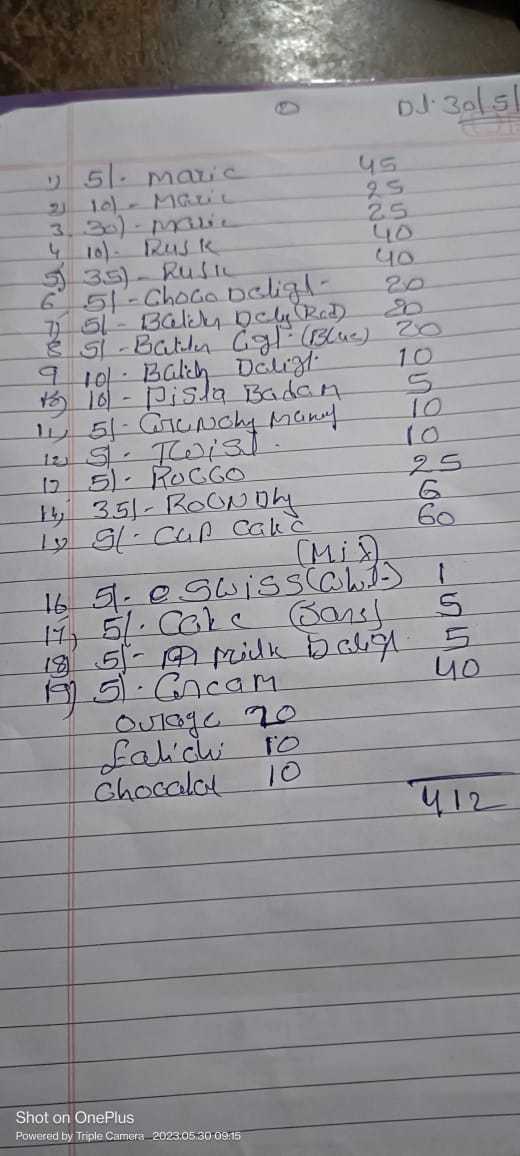 D.t. 30/5/
1) 5/- Marie 45
2) 10/- Marie 25
3. 30/- Marie 25
4 10/- Rusk 40
5) 35/- Rusk 40
6 5/- Choco Deligt- 20
7) 5/- (Red) 20
8 5/- (Blue) 20
9 10/- Deligt. 10
10) 10/- Pista Badam 5
11, 5/- Crunchy 10
12) 5/- Twist. 10
13 5/- Rocco 25
14, 35/- Roundly 6
15) 5/- Cup Cake 60
(Mix)
16 5/- e. Swiss 1
17, 5/- Cake 5
18) 5/- Milk 5
19) 5/- Cream 40
Ourage 20
Ealichi 10
Chocalat 10
412
Shot on OnePlus
Powered by Triple Camera 2023.05.30 09:15